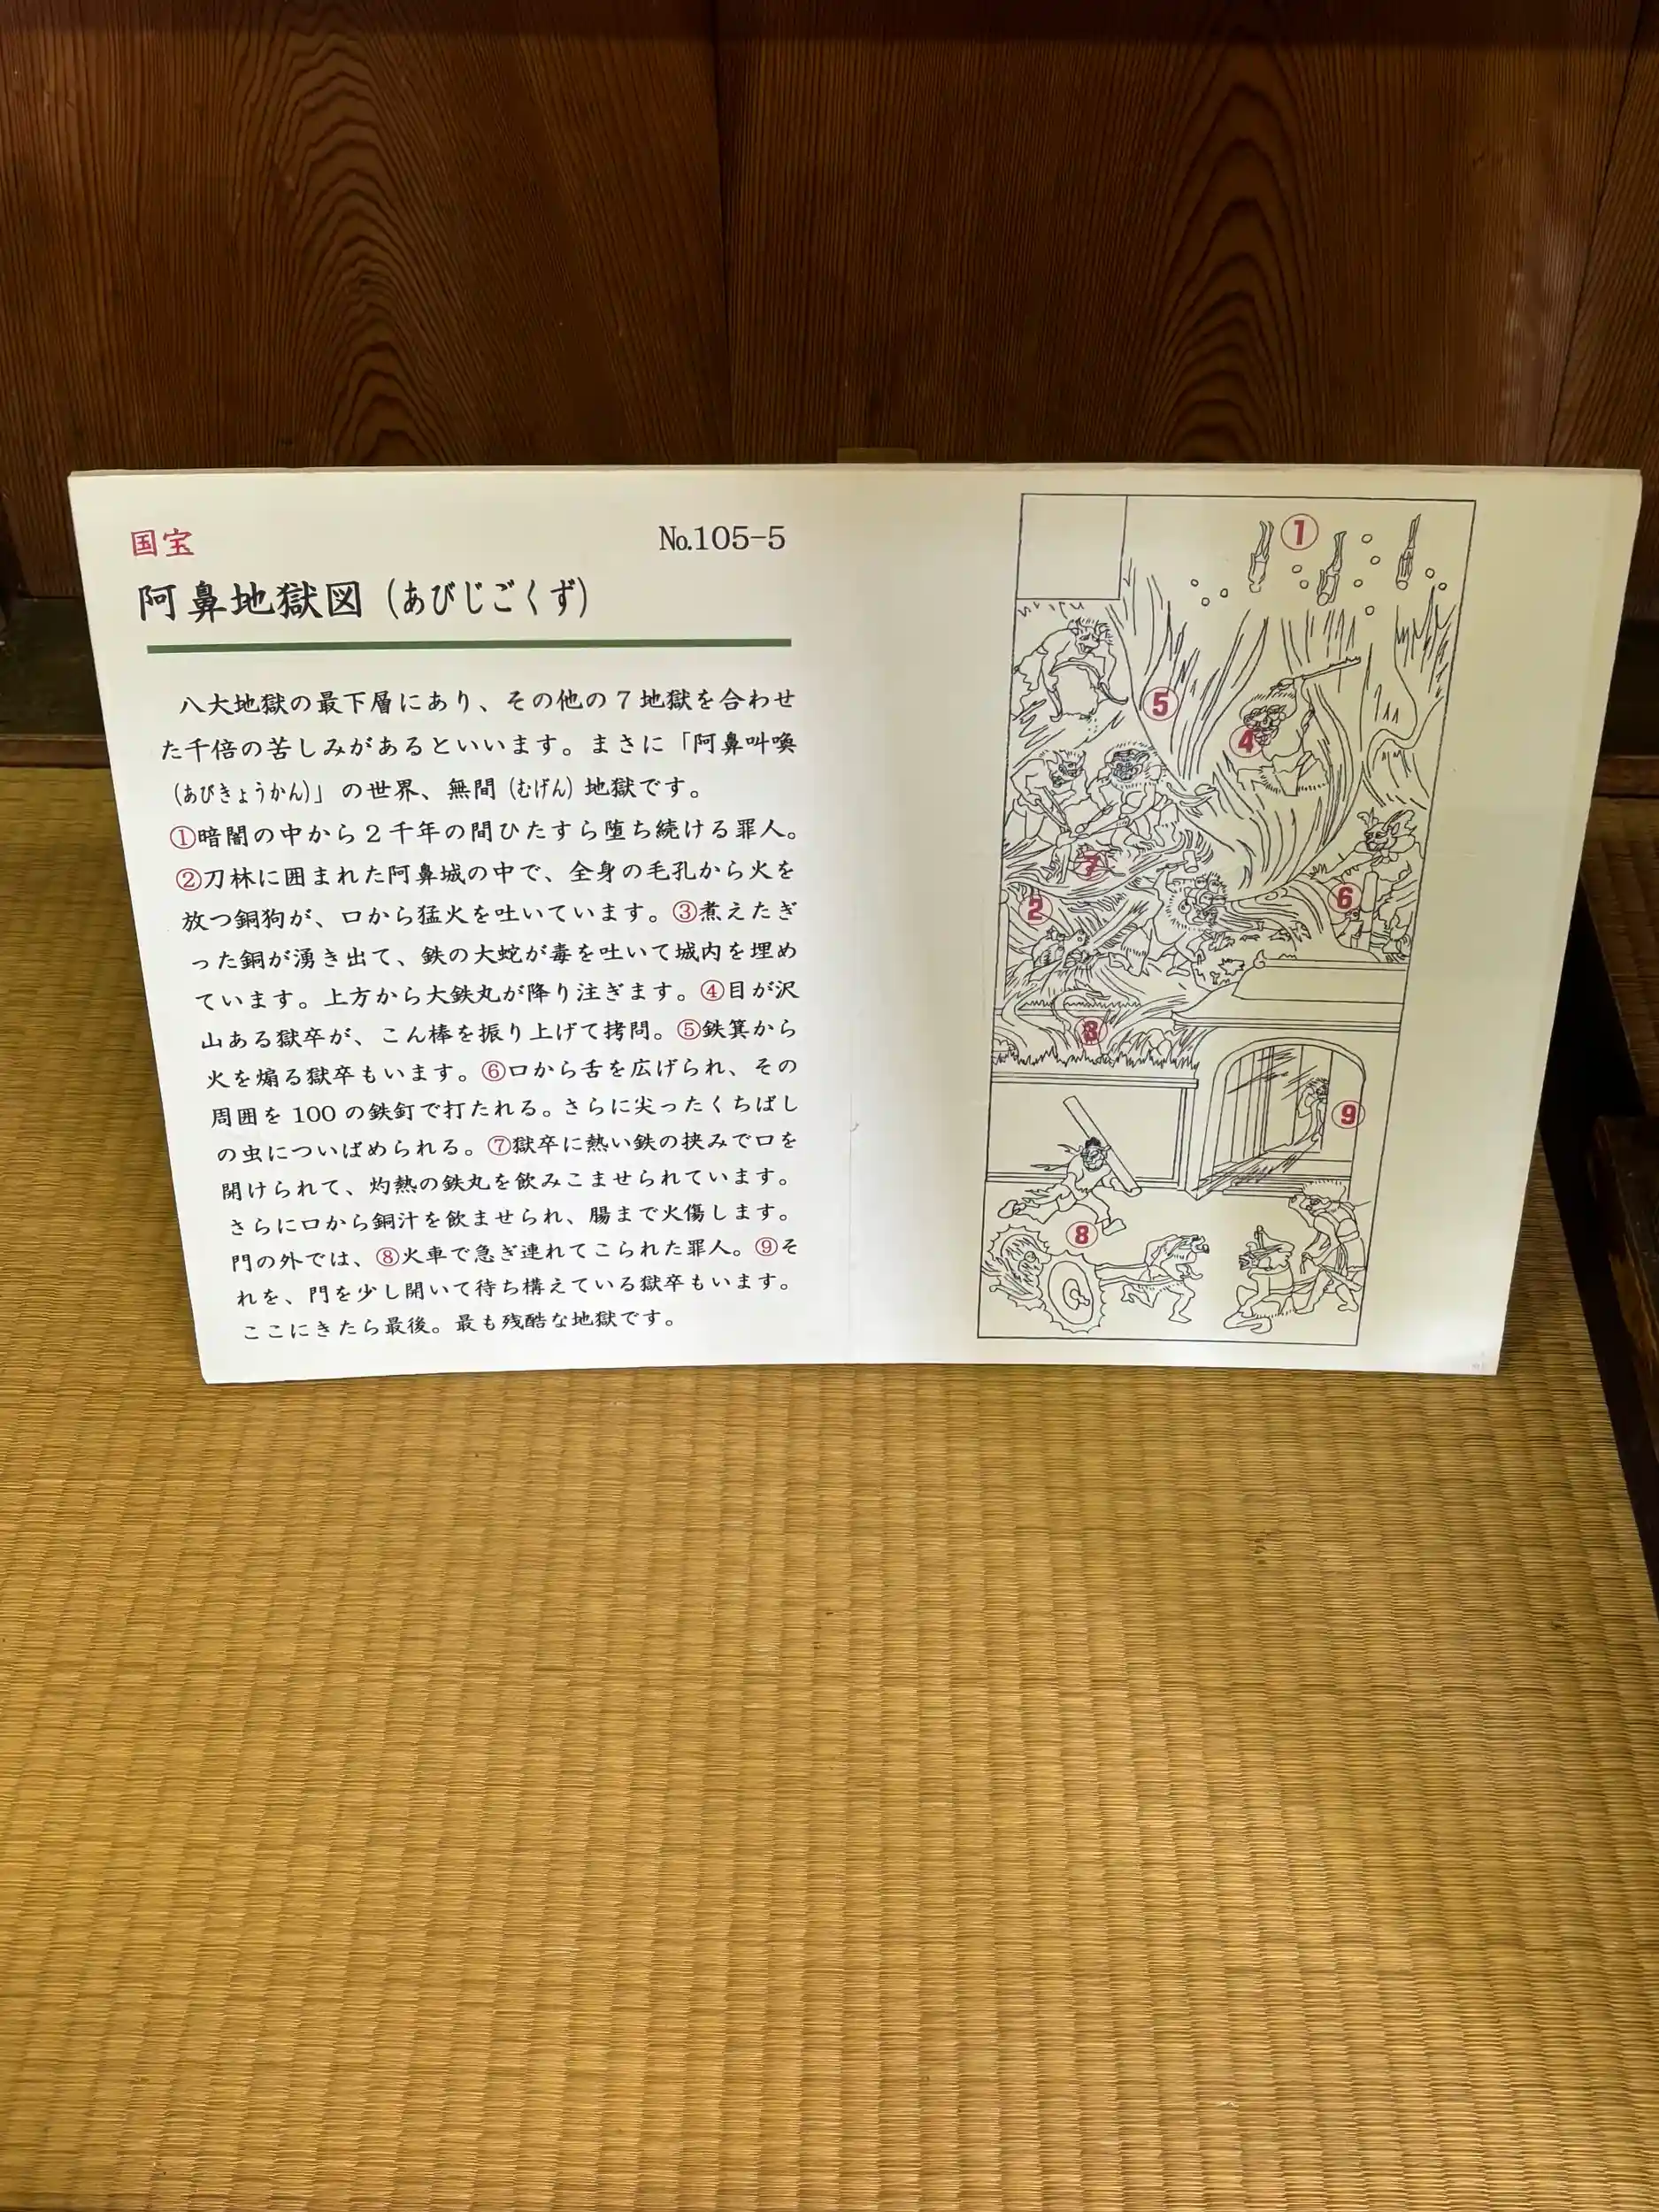 国宝
No.105-5
阿鼻地獄図（あびじごくず）
八大地獄の最下層にあり、その他の7地獄を合わせ
た千倍の苦しみがあるといいます。まさに「阿鼻叫喚
（あびきょうかん）」の世界、無間（むげん）地獄です。
①暗闇の中から2千年の間ひたすら堕ち続ける罪人。
②刀林に囲まれた阿鼻城の中で、全身の毛孔から火を
放つ銅狗が、口から猛火を吐いています。③煮えたぎ
った銅が湧き出て、鉄の大蛇が毒を吐いて城内を埋め
ています。上方から大鉄丸が降り注ぎます。④目が沢
山ある獄卒が、こん棒を振り上げて拷問。⑤鉄箕から
火を煽る獄卒もいます。⑥口から舌を広げられ、その
周囲を100の鉄釘で打たれる。さらに尖ったくちばし
の虫についばめられる。⑦獄卒に熱い鉄の挟みで口を
開けられて、灼熱の鉄丸を飲みこませられています。
さらに口から銅汁を飲ませられ、腸まで火傷します。
門の外では、⑧火車で急ぎ連れてこられた罪人。⑨そ
れを、門を少し開いて待ち構えている獄卒もいます。
ここにきたら最後。最も残酷な地獄です。
①
⑤
④
⑦
②
⑥
③
⑨
⑧